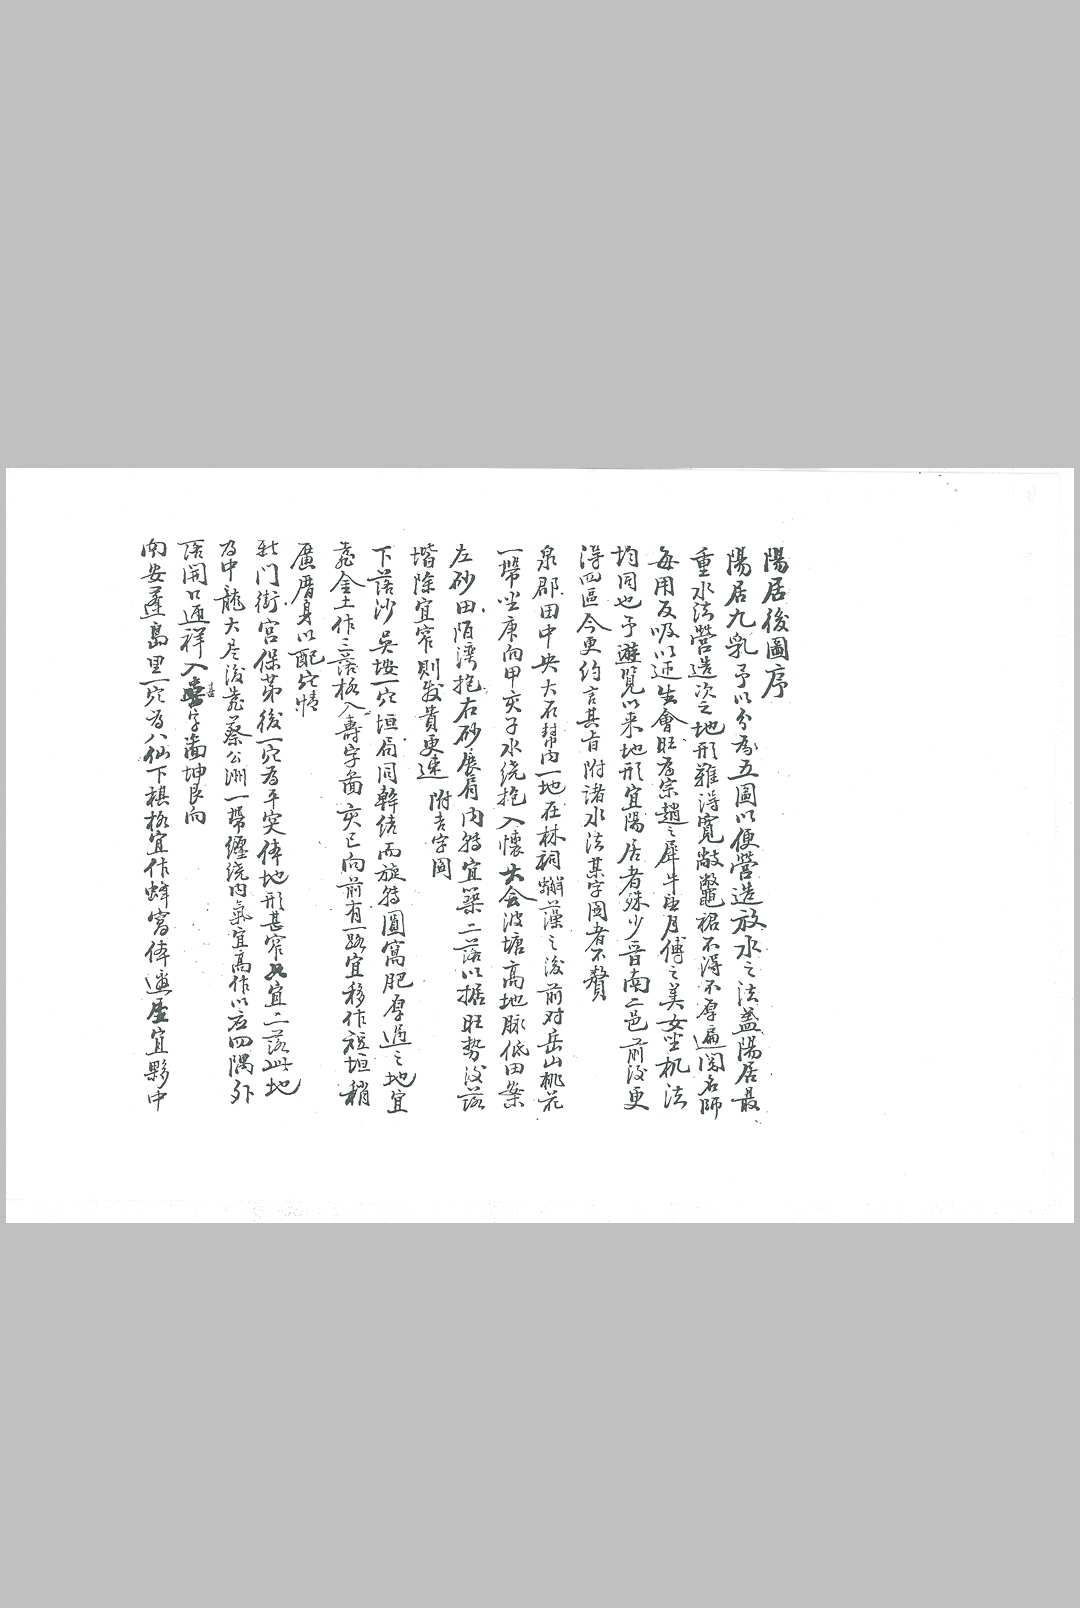 陽居後圖序
陽居九乳予以分為五圖以便營造放水之法蓋陽居最
重水法營造次之地形難得寬敞鼈裙不得不厚遍閱名師
每用反吸以迎生會旺為宗趙之犀牛望月傅之美女坐机法
均同也予遊覽以来地形宜陽居者殊少晋南二邑前後更
得四區今更約言其旨附諸水法某字圖者不贅
泉郡田中央大石幇内一地在林祠之後前对岳山桃花
一帶坐庚向甲亥子水绕抱入懷大会波塘高地脉低田案
左砂田陌湾抱右砂展肩内特宜築二落以据旺势後落
堦除宜窄則發貴更速 附吉字圖
下落沙吳垵一穴垣局同幹结而旋特圓窩肥厚過之地宜
靠金土作三落格入壽字圖亥巳向前有一路宜移作短垣稍
廣厝身以配穴情
新门街宮保第後一穴為平突体地形甚窄宜二落此地
為中龍大尽後靠蔡公洲一帶纏绕内氣宜高作以应四隅外
居開口通祥入喜字圖坤艮向
南安蓬島里一穴為八仙下棋格宜作蜂窩体屋宜夥中